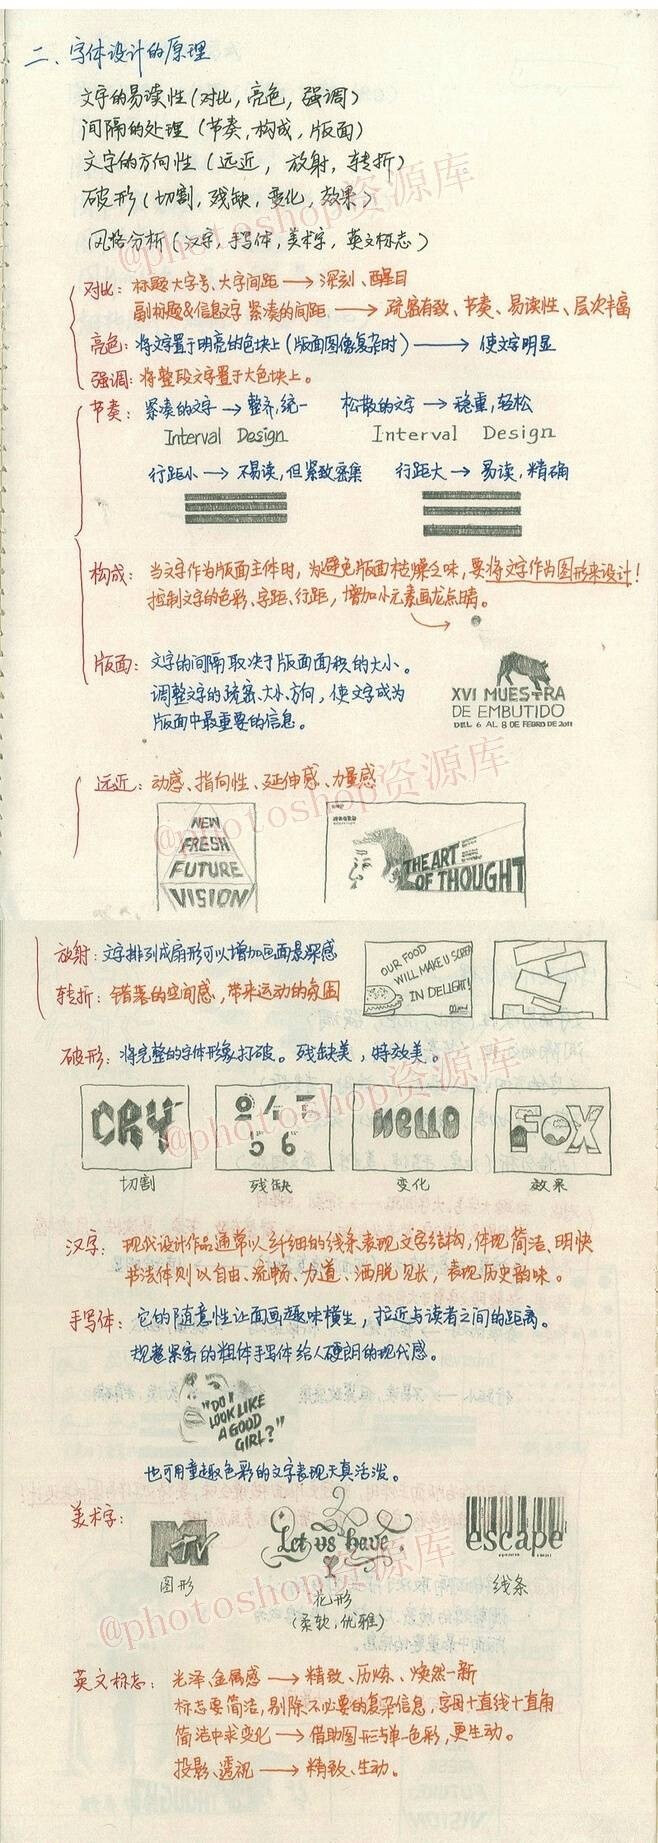 二、字体设计的原理
文字的易读性(对比,亮色,强调)
间隔的处理(节奏,构成,版面)
文字的方向性(远近,放射,转折)
破形(切割,残缺,变化,效果)
风格分析(汉字,手写体,美术字,英文标志)
@photoshop资源库
对比:标题大字号、大字间距→深刻、醒目
副标题&信息文字 紧凑的间距→疏密有致、节奏、易读性、层次丰富
亮色:将文字置于明亮的色块上(版面图像复杂时)→使文字明显
强调:将整段文字置于大色块上。
节奏:紧凑的文字→整齐,统一 松散的文字→稳重,轻松
Interval Design Interval Design
行距小→不易读,但紧致密集 行距大→易读,精确
构成:当文字作为版面主体时,为避免版面枯燥乏味,要将文字作为图形来设计!
控制文字的色彩、字距、行距,增加小元素画龙点睛。
版面:文字的间隔取决于版面面积的大小。
调整文字的疏密、大小、方向,使文字成为
版面中最重要的信息。
XVI MUESTRA
DE EMBUTIDO
DEL 6 AL 8 DE FEBRO DE 2011
远近:动感、指向性、延伸感、力量感
@photoshop资源库
NEW
FRESH
FUTURE
VISION
THE ART
OF THOUGHT
放射:文字排列成扇形可以增加画面景深感
转折:错落的空间感,带来运动的氛围
OUR FOOD
WILL MAKE U SCREAM
IN DELIGHT!
破形:将完整的字体形象打破。残缺美,特效美。
@photoshop资源库
CRY
HELLO
FOX
切割 残缺 变化 效果
汉字:现代设计作品通常以纤细的线条表现文字结构,体现简洁、明快
书法体则以自由、流畅、力道、洒脱见长,表现历史韵味。
手写体:它的随意性让画面趣味横生,拉近与读者之间的距离。
规整紧密的粗体手写体给人硬朗的现代感。
"DO I
LOOK LIKE
A GOOD
GIRL?"
也可用童趣色彩的文字表现天真活泼。
美术字:
MTV
Let us have
escape
图形 花形 线条
(柔软,优雅)
@photoshop资源库
英文标志:光泽、金属感→精致、历炼、焕然一新
标志要简洁,剔除不必要的复杂信息,字母+直线+直角
简洁中求变化→借助图形与单一色彩,更生动。
投影、透视→精致、生动。